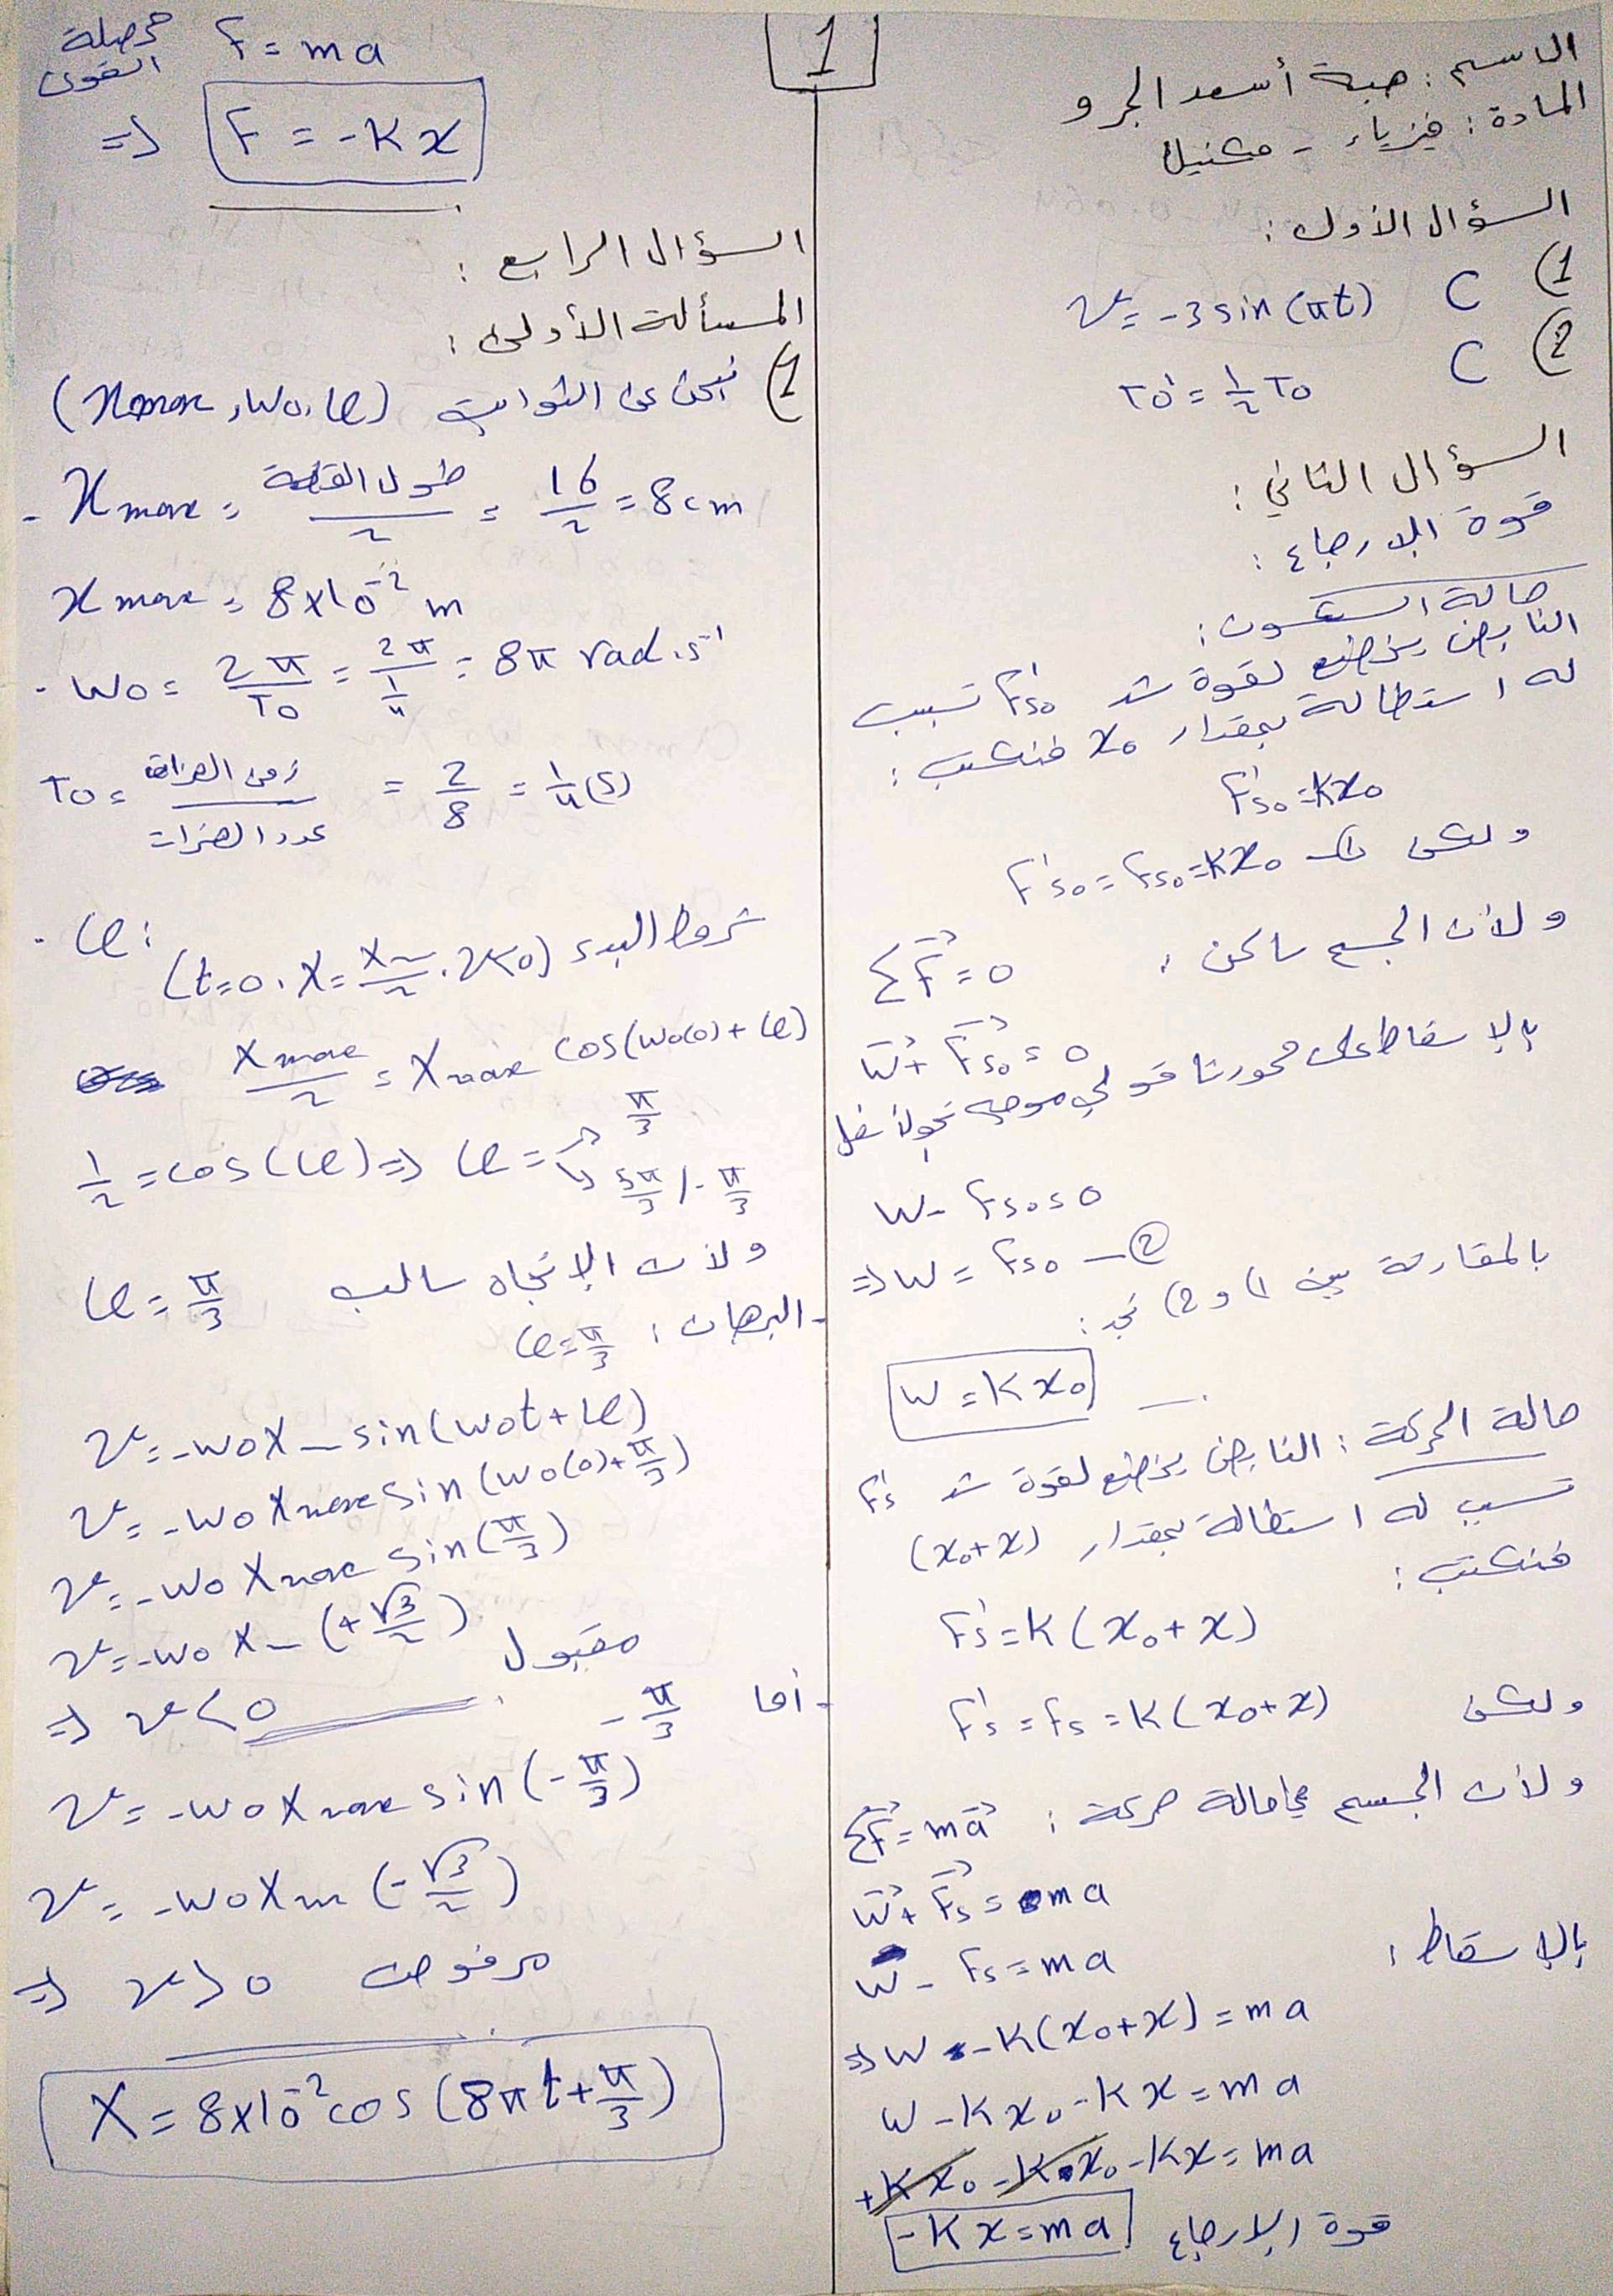 1
الاسم : هبة أسعد الجرو
المادة : فيزياء - مكنيك
السؤال الأول :
1) C v = -3 sin (πt)
2) C T0' = 1/2 T0
السؤال الثاني :
قوة الإرجاع :
حالة السكون :
النابض يخضع لقوة شد F's0 تسبب
له استطالة بمقدار x0 فنكتب :
F's0 = kx0
ولكن F's0 = Fs0 = kx0 -①
ولأن الجسم ساكن : ΣF⃗ = 0
W⃗ + F⃗s0 = 0
بالإسقاط على محور شاقولي موجه نحو الأسفل
W - Fs0 = 0
⇒ W = Fs0 -②
بالمقارنة بين 1) و 2) نجد :
W = k x0
حالة الحركة : النابض يخضع لقوة شد F's
تسبب له استطالة بمقدار (x0+x)
فنكتب :
F's = k (x0 + x)
ولكن F's = Fs = k (x0+x)
ولأن الجسم في حالة حركة : ΣF⃗ = ma⃗
W⃗ + F⃗s = ma
بالإسقاط : W - Fs = ma
⇒ W - k(x0+x) = ma
W - kx0 - kx = ma
+kx0 - kx0 - kx = ma
-kx = ma قوة الإرجاع
محصلة القوى F = ma
⇒ F = -kx
السؤال الرابع :
المسألة الأولى :
1) نبحث عن الثوابت (Xmax, ω0, φ)
- Xmax = طول القطعة / 2 = 16/2 = 8 cm
Xmax = 8×10⁻² m
- ω0 = 2π/T0 = 2π/(1/4) = 8π rad.s⁻¹
T0 = زمن الهزات / عدد الهزات = 2/8 = 1/4 (s)
- φ : شروط البدء (t=0, X = Xm/2, v<0)
Xmax/2 = Xmax cos(ω0(0) + φ)
1/2 = cos(φ) ⇒ φ = π/3
5π/3 / -π/3
ولأن الإتجاه سالب φ = π/3
- البرهان : φ = π/3
v = -ω0Xm sin(ω0t+φ)
v = -ω0 Xmax sin (ω0(0)+π/3)
v = -ω0 Xmax sin(π/3)
v = -ω0 Xm (+√3/2)
⇒ v<0 مقبول
- أما -π/3
v = -ω0 Xmax sin(-π/3)
v = -ω0 Xm (-√3/2)
⇒ v>0 مرفوض
X = 8×10⁻² cos (8πt + π/3)